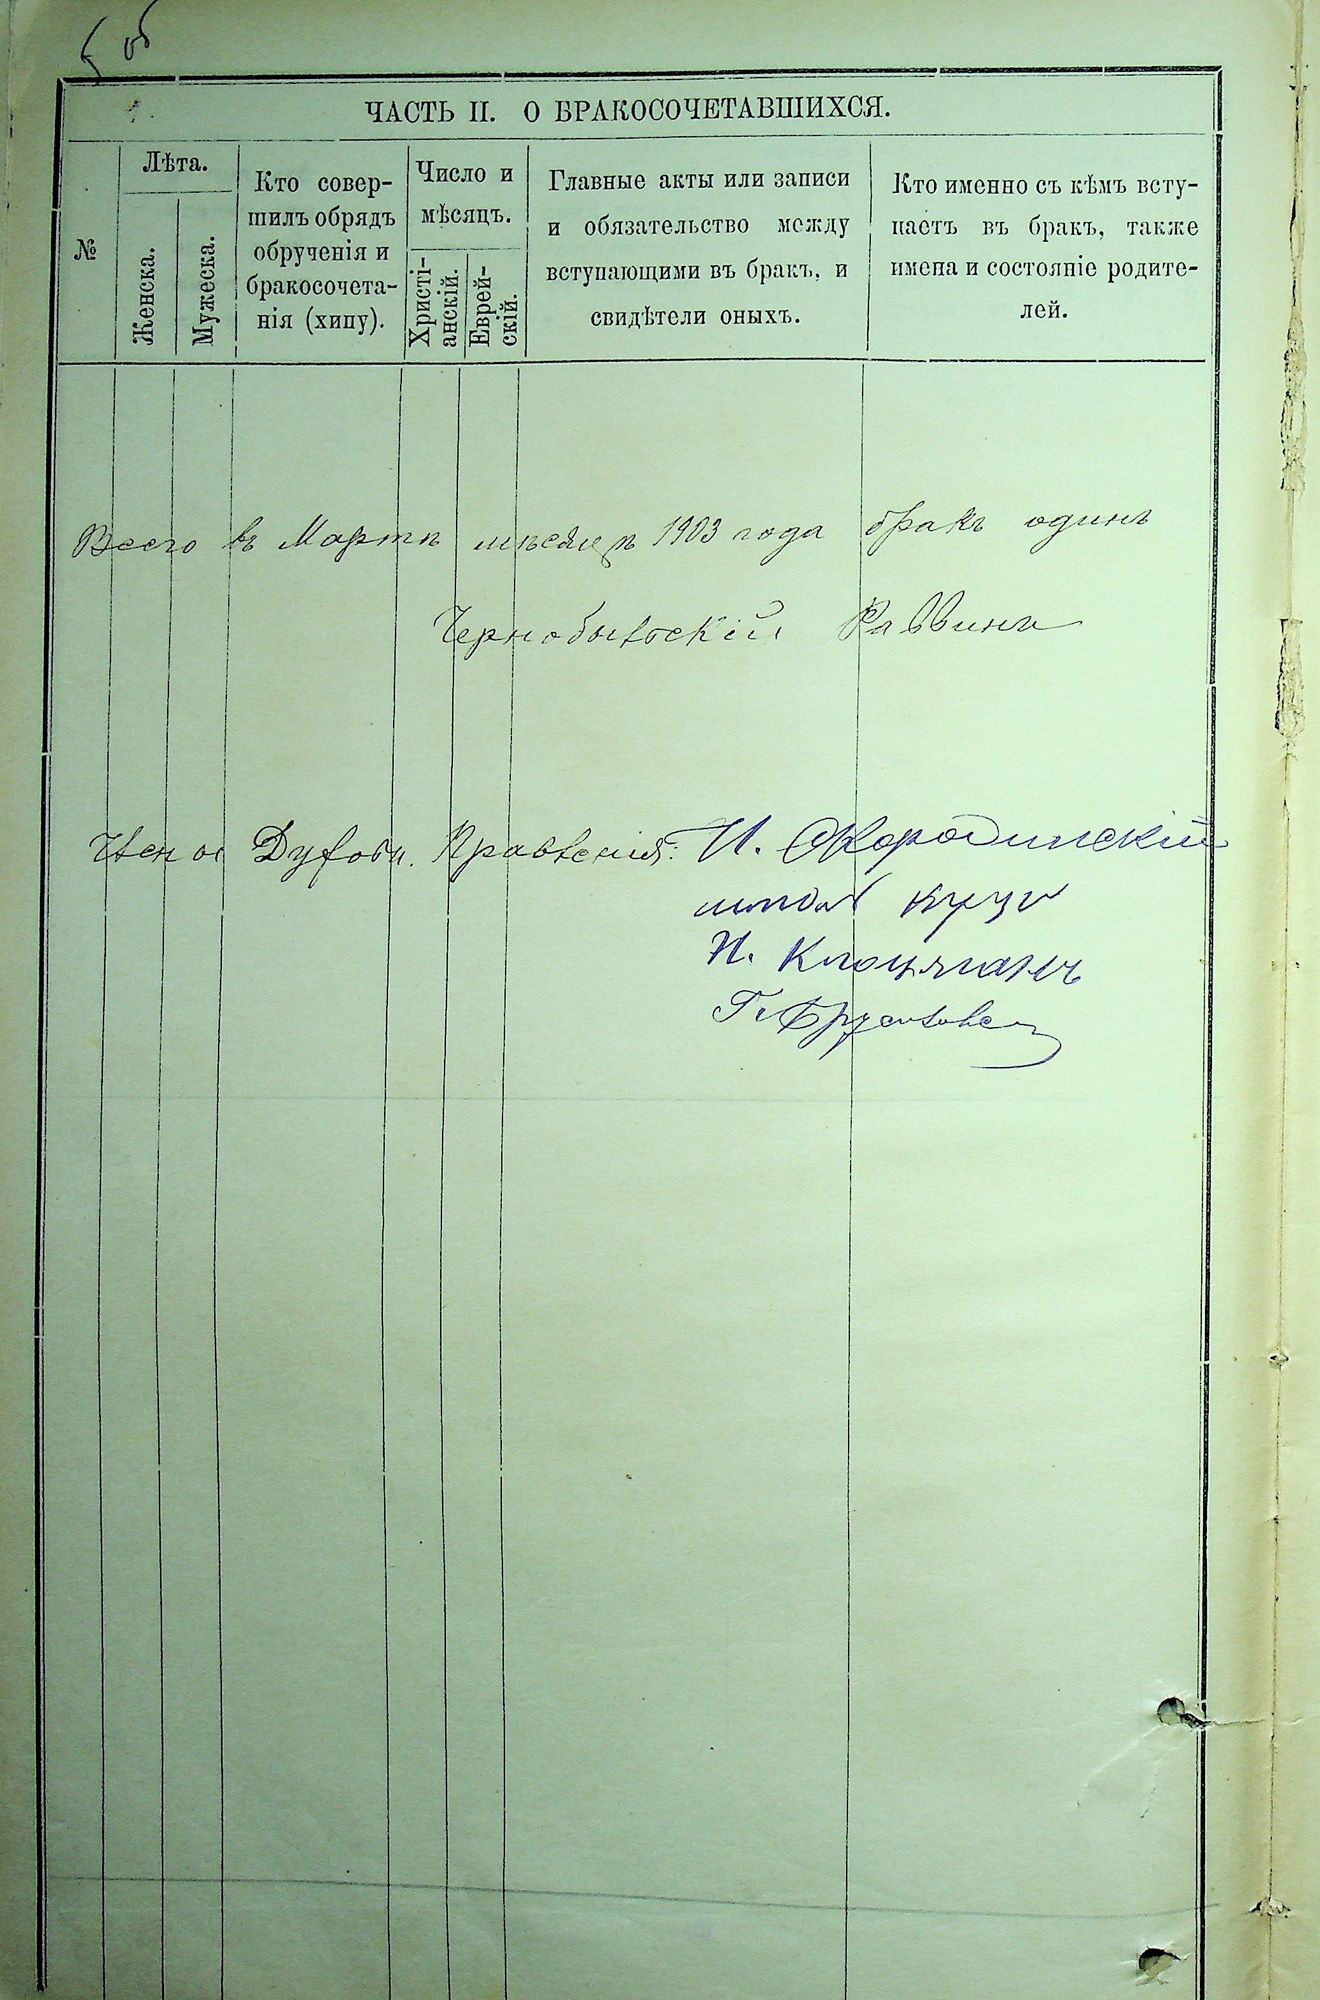 5 об
ЧАСТЬ II. О БРАКОСОЧЕТАВШИХСЯ.
№
Лѣта.
Женска.
Мужеска.
Кто совер-
шилъ обрядъ
обрученія и
бракосочета-
нія (хипу).
Число и
мѣсяцъ.
Христі-
анскій.
Еврей-
скій.
Главные акты или записи
и обязательство между
вступающими въ бракъ, и
свидѣтели оныхъ.
Кто именно съ кѣмъ всту-
паетъ въ бракъ, также
имена и состояніе родите-
лей.
Всего въ Мартѣ мѣсяцѣ 1903 года бракъ одинъ
Чернобыльскій Раввинъ
Члены Духовн. Правленія: И. Скородинскій
И.
Г.